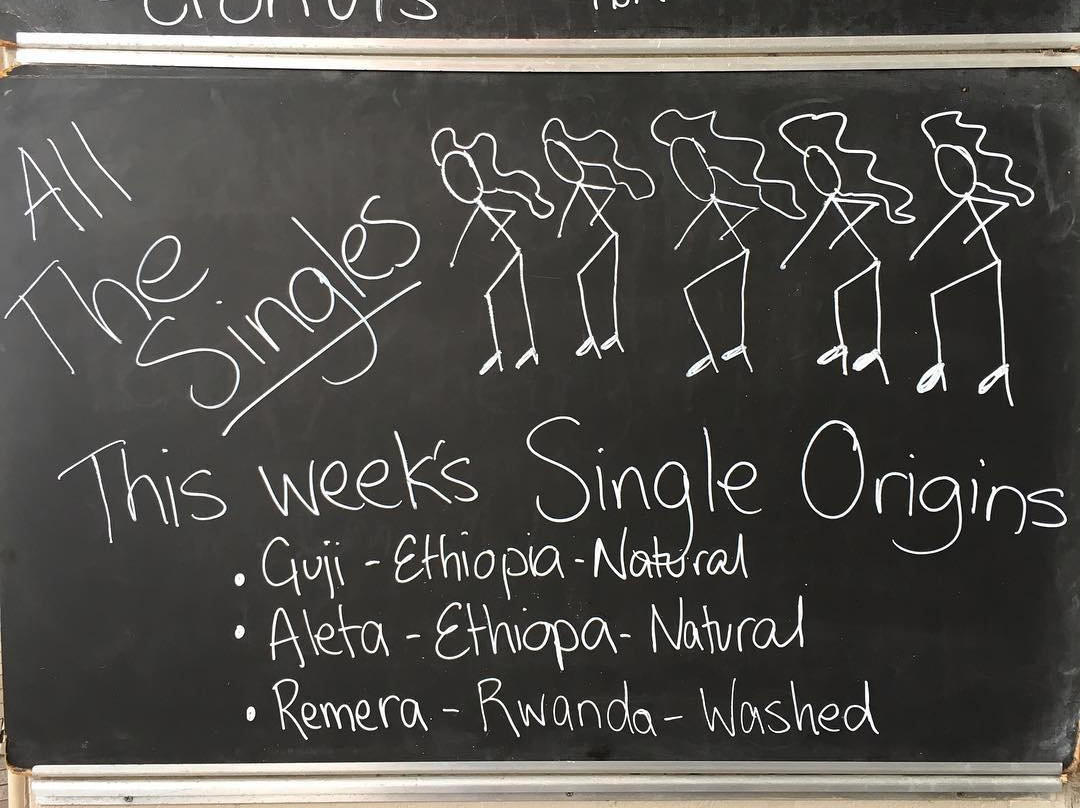 donuts
All
The
Singles
This week's Single Origins
• Guji - Ethiopia - Natural
• Aleta - Ethiopa - Natural
• Remera - Rwanda - Washed